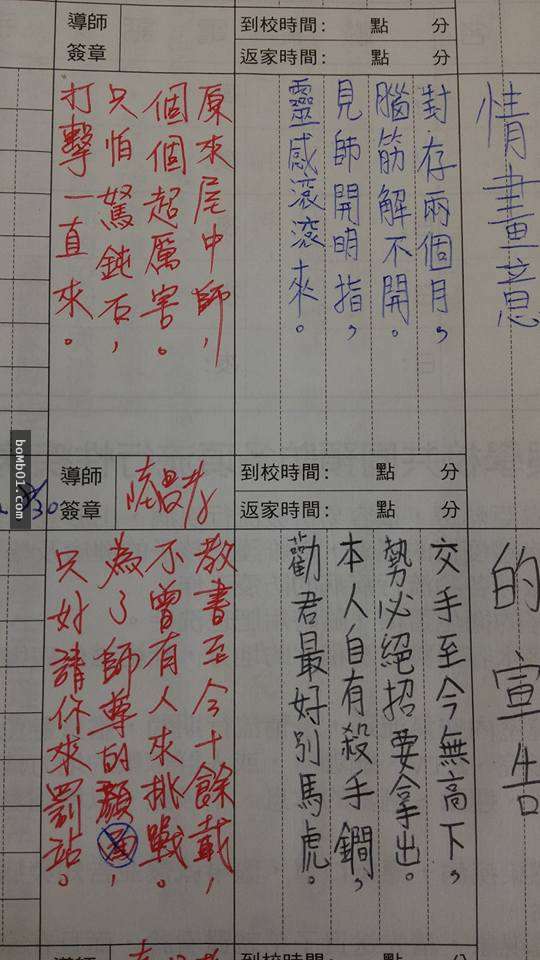 到校時間： 點 分
返家時間： 點 分
導師
簽章
情畫意
封存兩個月，
腦筋解不開。
見師開明指，
靈感滾滾來。
原來尾中師，
個個超厲害。
只怕駑鈍石，
打擊一直來。
到校時間： 點 分
返家時間： 點 分
導師
簽章
的宣告
交手至今無高下，
勢必絕招要拿出。
本人自有殺手鐧，
勸君最好別馬虎。
教書至今十餘載，
不曾有人來挑戰。
為了師尊的顏面，
只好請你來罰站。
到校時間： 點 分
bomb01.com